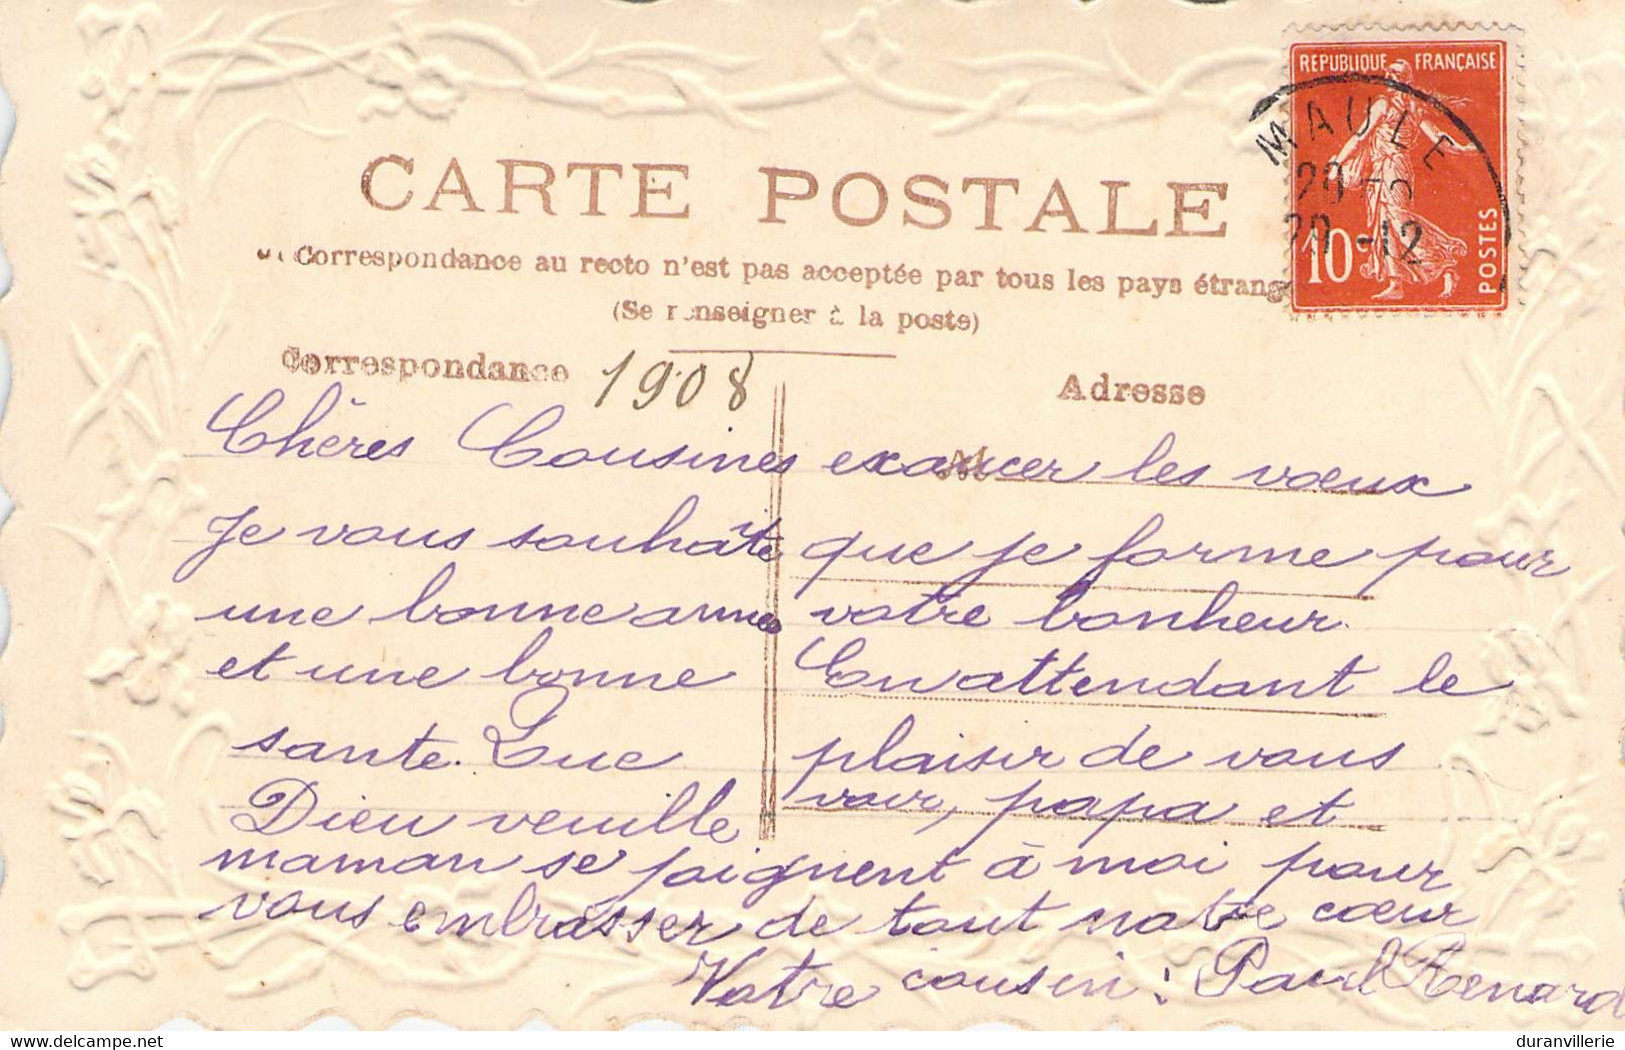 REPUBLIQUE FRANÇAISE
MAULE
20
-12
10c
POSTES
CARTE POSTALE
Correspondance au recto n'est pas acceptée par tous les pays étrang
(Se renseigner à la poste)
Correspondance 1908
Adresse
Chères Cousines
Je vous souhaîte
une bonne année
et une bonne
sante. Que
Dieu veuille
exaucer les vœux
que je forme pour
votre bonheur.
En attendant le
plaisir de vous
voir, papa et
maman se joignent à moi pour
vous embrasser de tout notre cœur
Votre cousin: Paul Renard
www.delcampe.net
duranvillerie